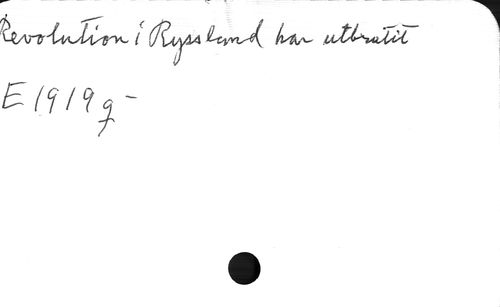 Revolution i Ryssland har utbrutit
E 1919 g -